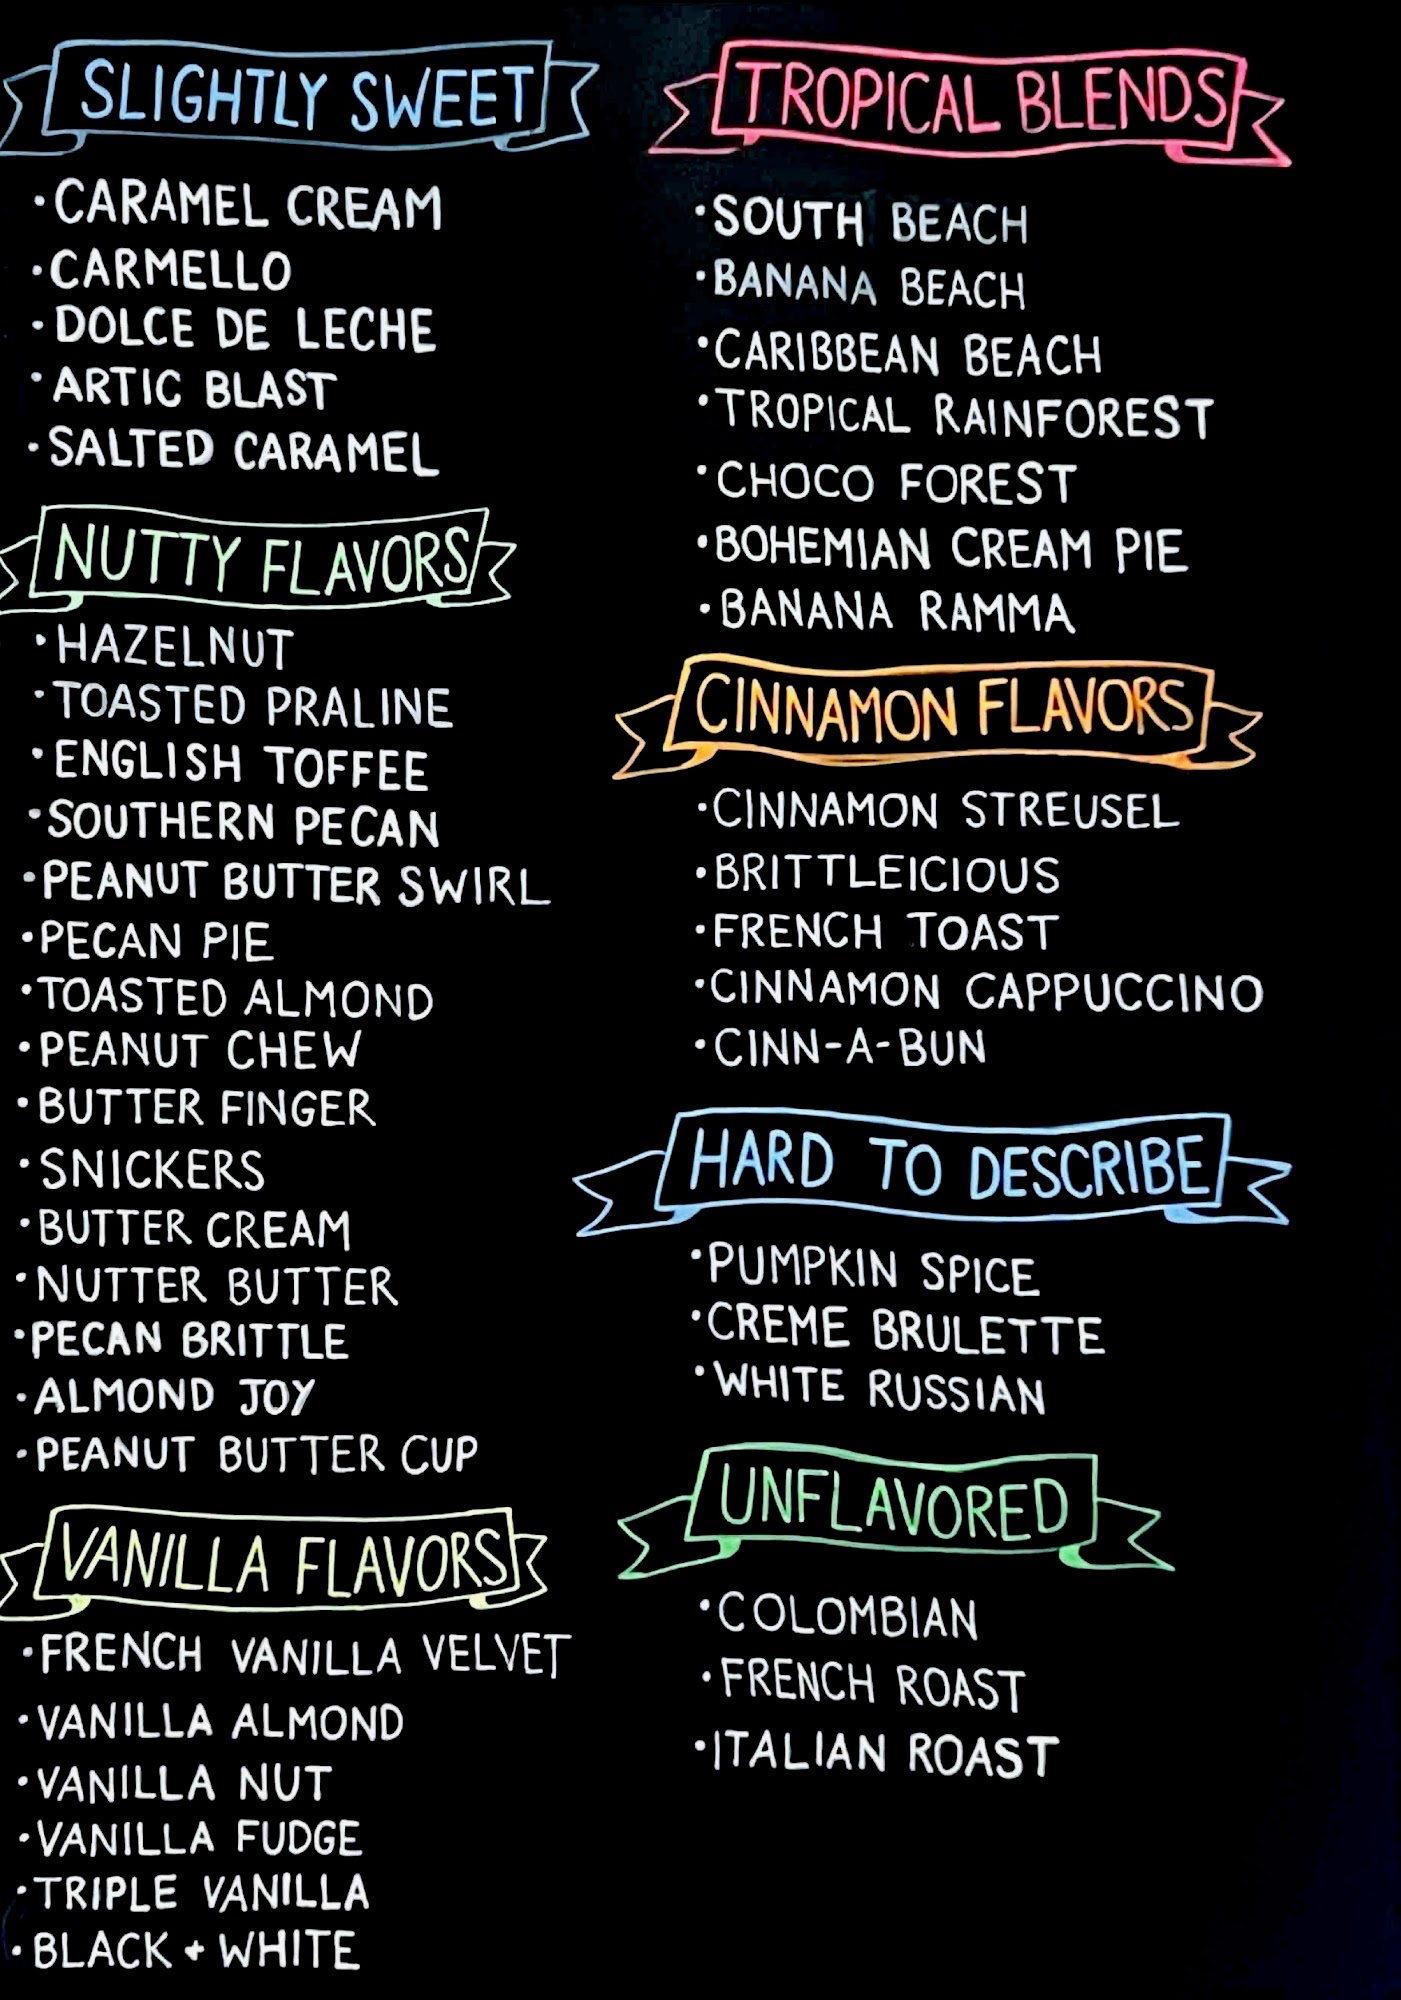 SLIGHTLY SWEET
• CARAMEL CREAM
• CARMELLO
• DOLCE DE LECHE
• ARTIC BLAST
• SALTED CARAMEL
NUTTY FLAVORS
• HAZELNUT
• TOASTED PRALINE
• ENGLISH TOFFEE
• SOUTHERN PECAN
• PEANUT BUTTER SWIRL
• PECAN PIE
• TOASTED ALMOND
• PEANUT CHEW
• BUTTER FINGER
• SNICKERS
• BUTTER CREAM
• NUTTER BUTTER
• PECAN BRITTLE
• ALMOND JOY
• PEANUT BUTTER CUP
VANILLA FLAVORS
• FRENCH VANILLA VELVET
• VANILLA ALMOND
• VANILLA NUT
• VANILLA FUDGE
• TRIPLE VANILLA
• BLACK + WHITE
TROPICAL BLENDS
• SOUTH BEACH
• BANANA BEACH
• CARIBBEAN BEACH
• TROPICAL RAINFOREST
• CHOCO FOREST
• BOHEMIAN CREAM PIE
• BANANA RAMMA
CINNAMON FLAVORS
• CINNAMON STREUSEL
• BRITTLEICIOUS
• FRENCH TOAST
• CINNAMON CAPPUCCINO
• CINN-A-BUN
HARD TO DESCRIBE
• PUMPKIN SPICE
• CREME BRULETTE
• WHITE RUSSIAN
UNFLAVORED
• COLOMBIAN
• FRENCH ROAST
• ITALIAN ROAST